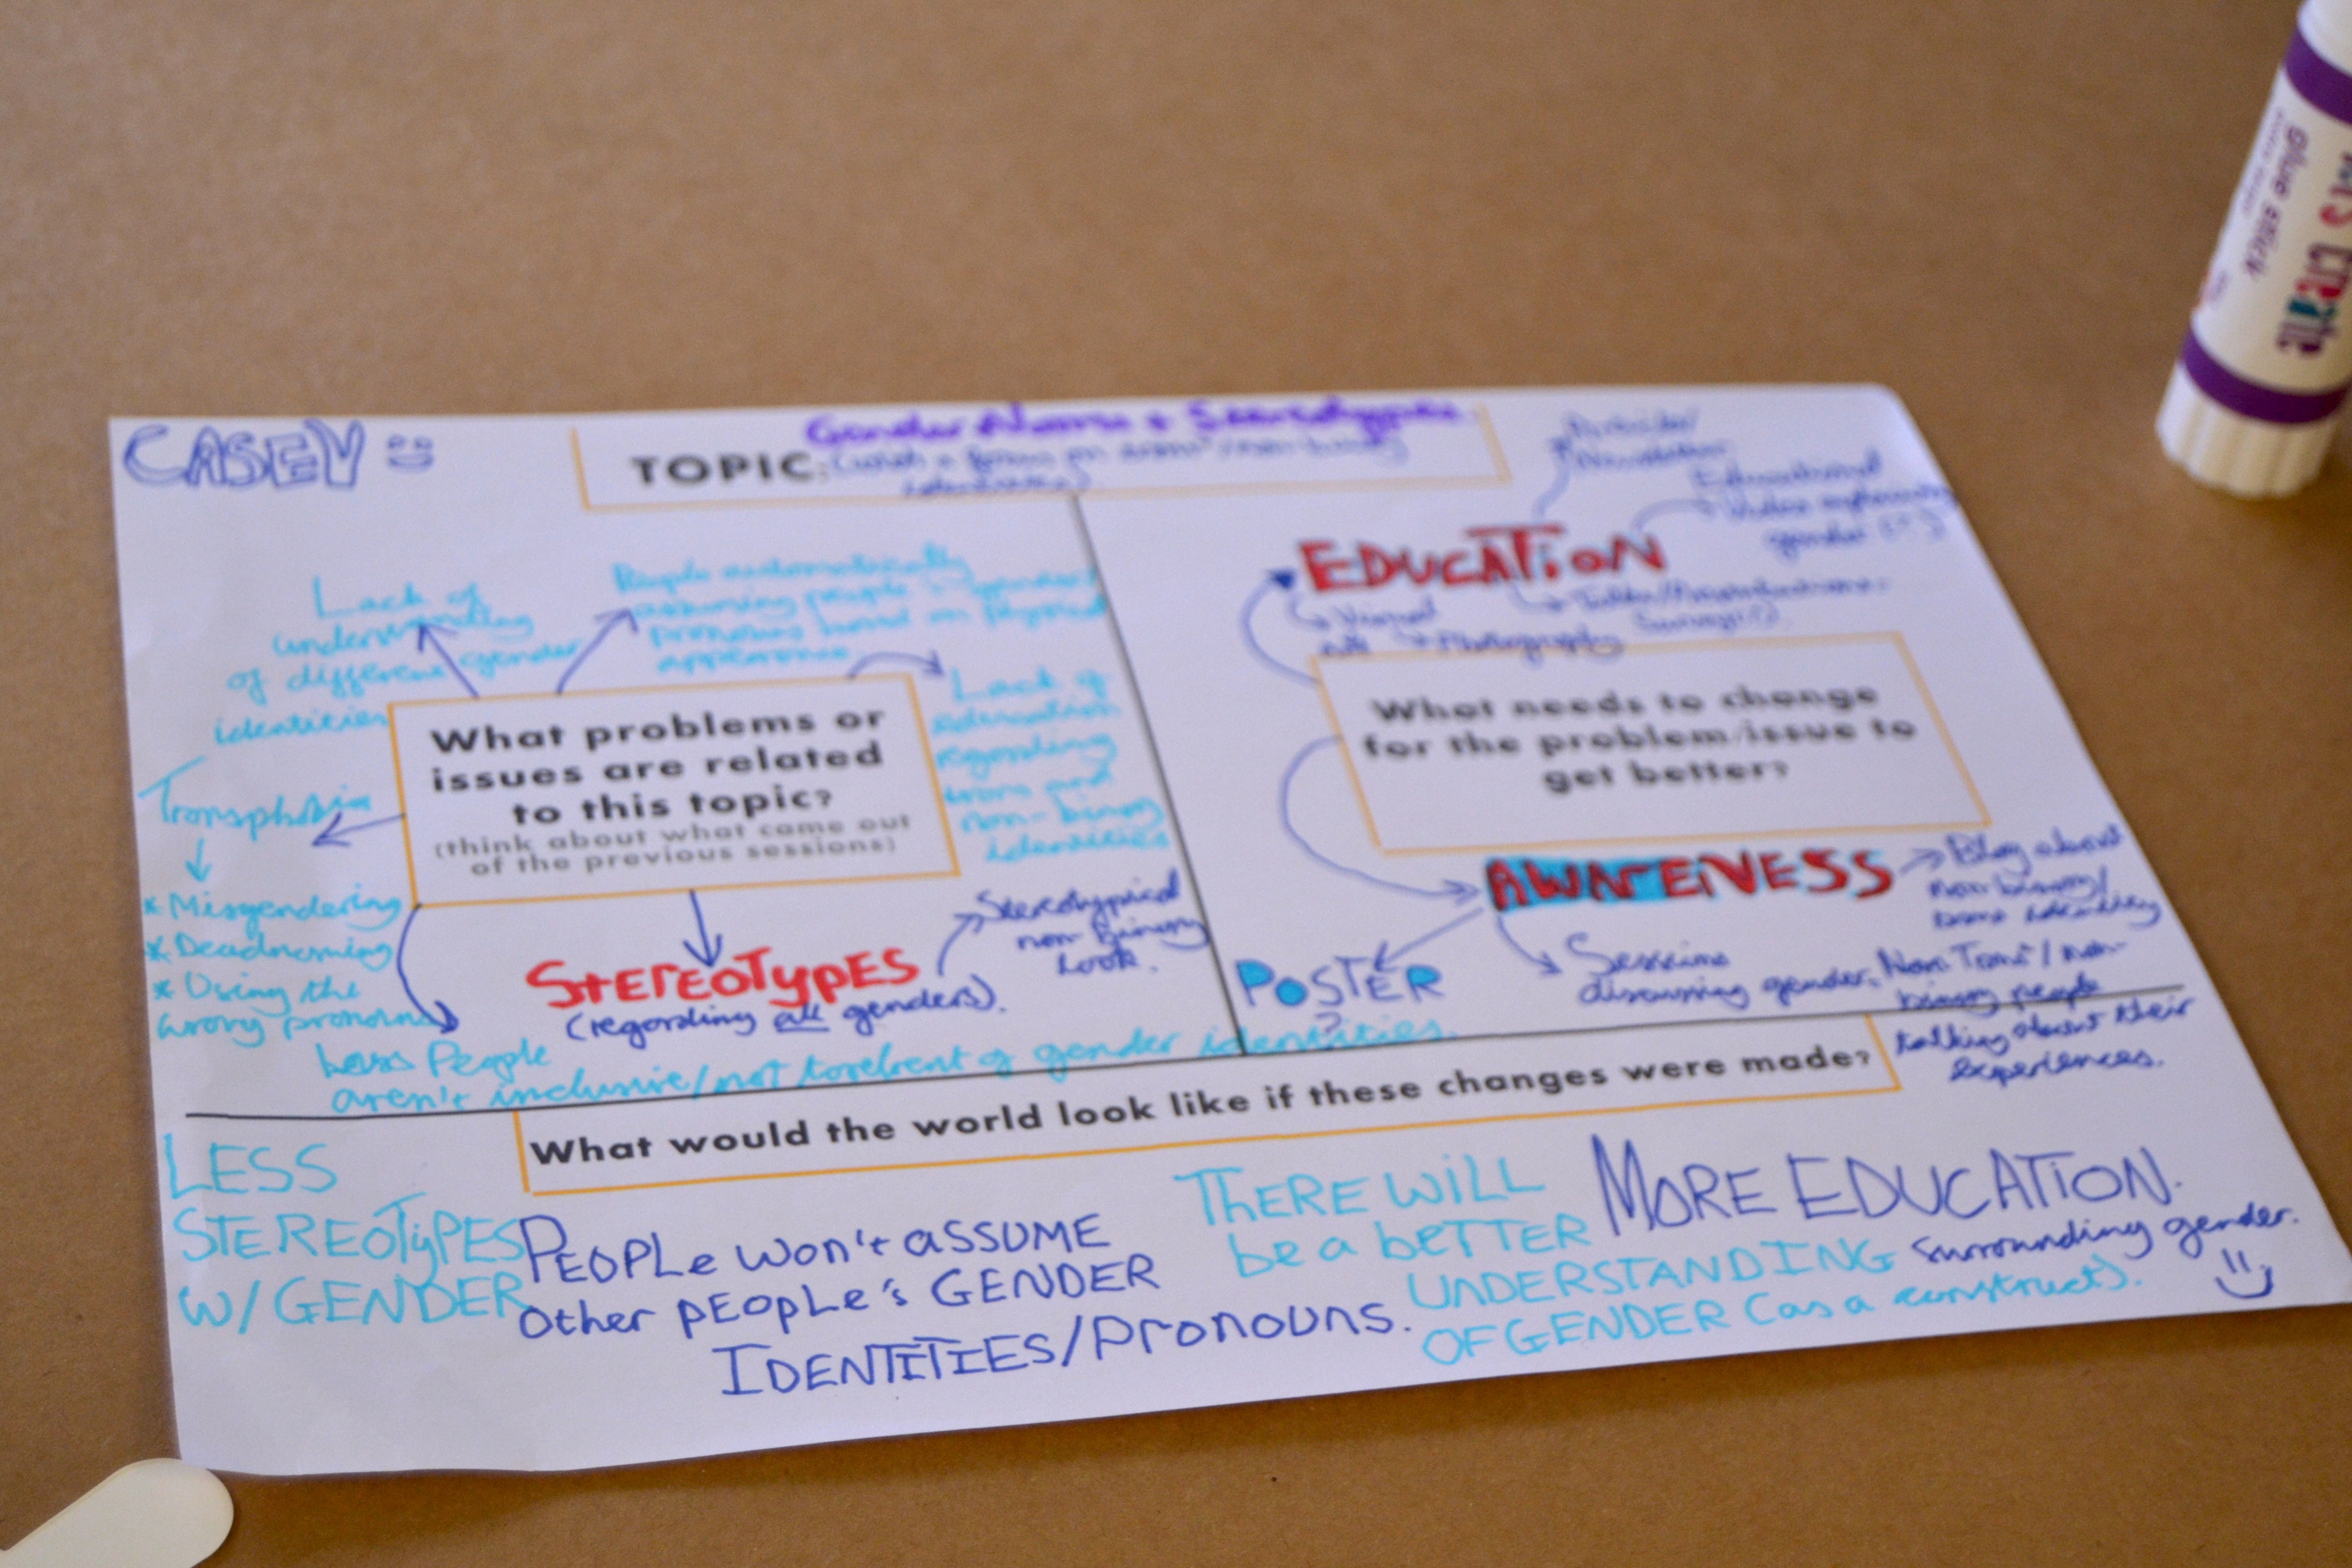 CASEY
Gender Norms + Stereotypes
TOPIC:
(with a focus on trans/non-binary
identities)
Lack of
understanding
of different gender
identities
People automatically
assuming people's gender/
pronouns based on physical
appearance
Lack of
education
regarding
trans and
non-binary
identities
What problems or
issues are related
to this topic?
(think about what came out
of the previous sessions)
Transphobia
* Misgendering
* Deadnaming
* Using the
wrong pronouns
STEREOTYPES
(regarding all genders).
Stereotypical
non-binary
look.
People
aren't inclusive/not tolerent of gender identities.
EDUCATION
Newsletter
Educational
Video explaining
gender
Visual
art
Photography
What needs to change
for the problem/issue to
get better?
AWARENESS
Blog about
non binary/
trans identity
POSTER
?
Sessions
discussing gender.
Trans/non-
binary people
talking about their
experiences.
What would the world look like if these changes were made?
LESS
STEREOTYPES
W/GENDER
PEOPLE WON'T ASSUME
OTHER PEOPLE'S GENDER
IDENTITIES/PRONOUNS.
THERE WILL
be a BETTER
UNDERSTANDING
OF GENDER (as a construct).
MORE EDUCATION.
surrounding gender.
glue stick